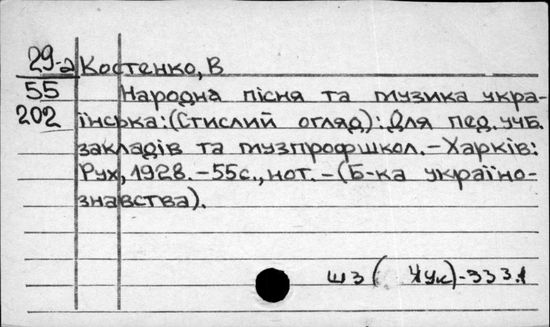 29-а Костенко, В
55 Народна пісня та музика укра-
202 їнська: (Стислий огляд): Для пед. учб.
закладів та музпрофшкол. - Харків:
Рух, 1928. - 55с., нот. - (Б-ка україно-
знавства).
ШЗ ( Чук) - 933.1